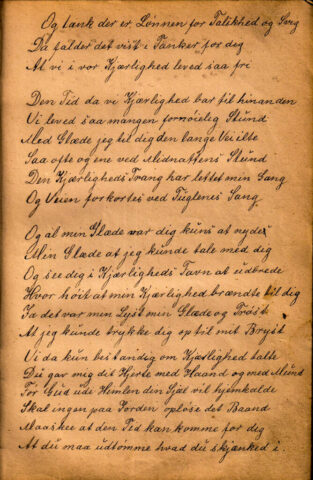 Og tænk der er Lønnen for Falskhed og Svig
Da falder det vist i Tanker for dig
At vi i vor Kjærlighed leved saa fri
Den Tid da vi Kjærlighed bar til hinanden
Vi leved saa mangen fornøielig Stund
Med Glæde jeg til dig den lange Vei ilte
Saa ofte og ene ved Midnattens Stund
Den Kjærligheds Trang har lettet min Gang
Og Veien forkortes ved Fuglenes Sang
Og al min Glæde var dig kuns at nyde
Min Glæde at jeg kunde tale med dig
Og see dig i Kjærligheds Favn at udbrede
Hvor høit at min Kjærlighed brændte til dig
Ja det var min Lyst min Glæde og Trøst
At jeg kunde trykke dig op til mit Bryst
Vi da kun bestandig om Kjærlighed talte
Du gav mig dit Hjerte med Haand og med Mund
Før Gud ude Himlen den Sjæl vil hjemkalde
Skal ingen paa Jorden opløse det Baand
Maaskee at den Tid kan komme for dig
At du maa udtømme hvad du skjænked i.